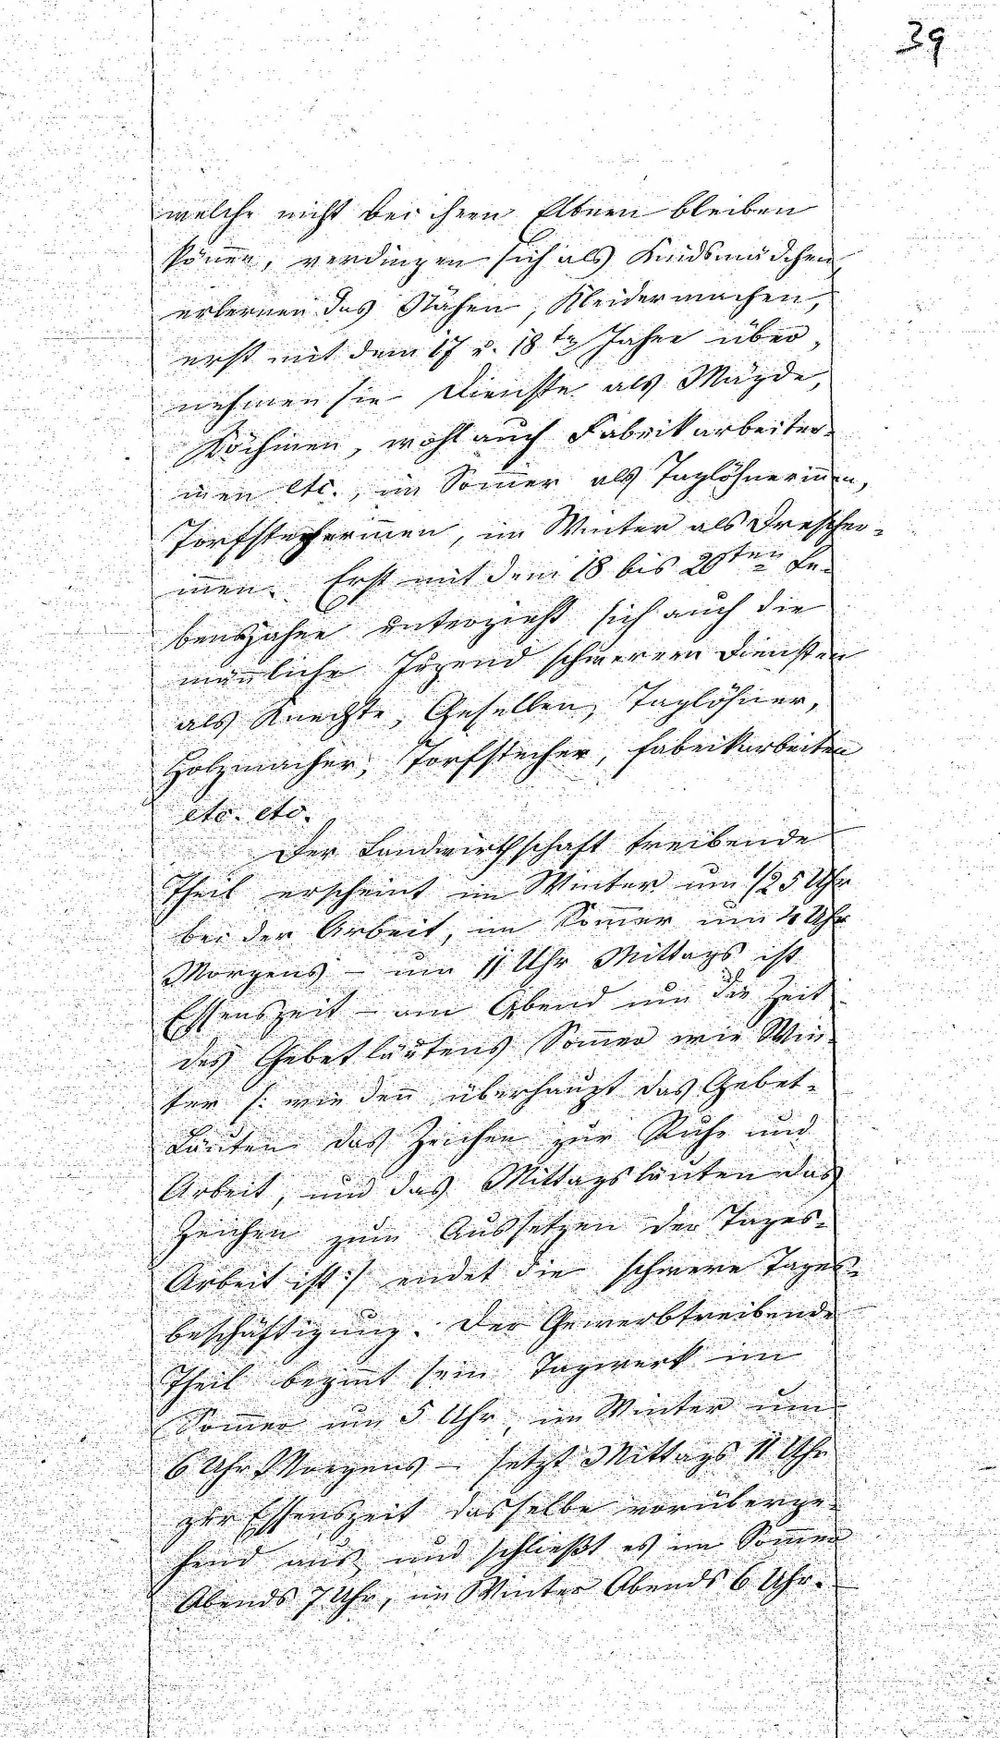 39
welche nicht bei ihren Eltern bleiben
können, verdingen sich als Kindsmädchen,
erlernen das Nähen, Kleidermachen,
erst mit dem 17 u. 18ten Jahre über-
nehmen sie Dienste als Mägde,
Köchinen, wohl auch Fabrikarbeiter-
inen etc., im Sommer als Taglöhnerinnen,
Torfstecherinnen, im Winter als Drescher-
innen. Erst mit dem 18 bis 20ten Le-
bensjahre unterzieht sich auch die
mänliche Jugend schwereren Diensten
als Knechte, Gesellen, Taglöhner,
Holzmacher, Torfstecher, Fabrikarbeiten
etc. etc.
Der Landwirthschaft treibende
Theil erscheint im Winter um 1/2 5 Uhr
bei der Arbeit, im Sommer um 4 Uhr
Morgens – um 11 Uhr Mittags ist
Essenszeit – am Abend um die Zeit
des Gebetläutens Sommer wie Win-
ter /: wie denn überhaupt das Gebet-
Läuten das Zeichen zur Ruhe und
Arbeit, und das Mittagsläuten das
Zeichen zum Aussetzen der Tages-
Arbeit ist :/ endet die schwere Tages-
beschäftigung. Der Gewerbtreibende
Theil beginnt sein Tagwerk im
Sommer um 5 Uhr, im Winter um
6 Uhr Morgens – setzt Mittags 11 Uhr
zur Essenszeit dasselbe vorüberge-
hend aus und schließt es im Sommer
Abends 7 Uhr, im Winter Abends 6 Uhr.